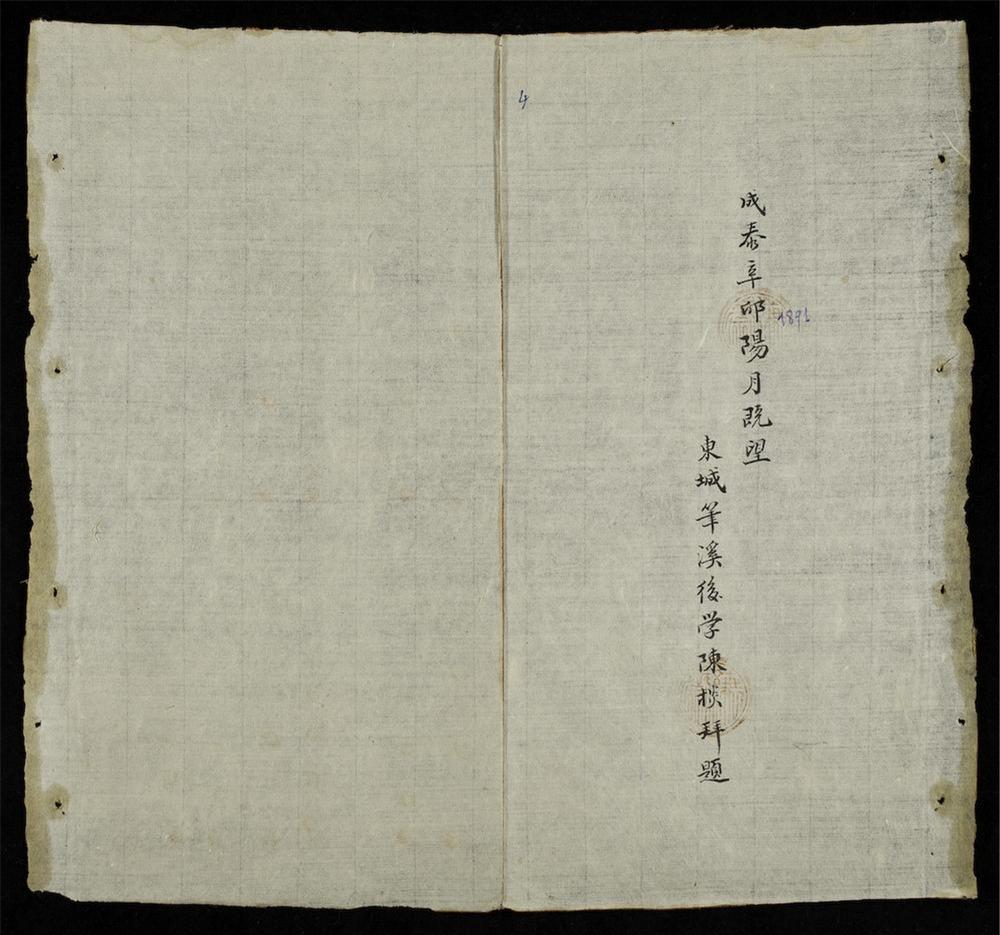 4
成泰辛卯陽月既望
1891
東城筆溪後学陳棪拜題